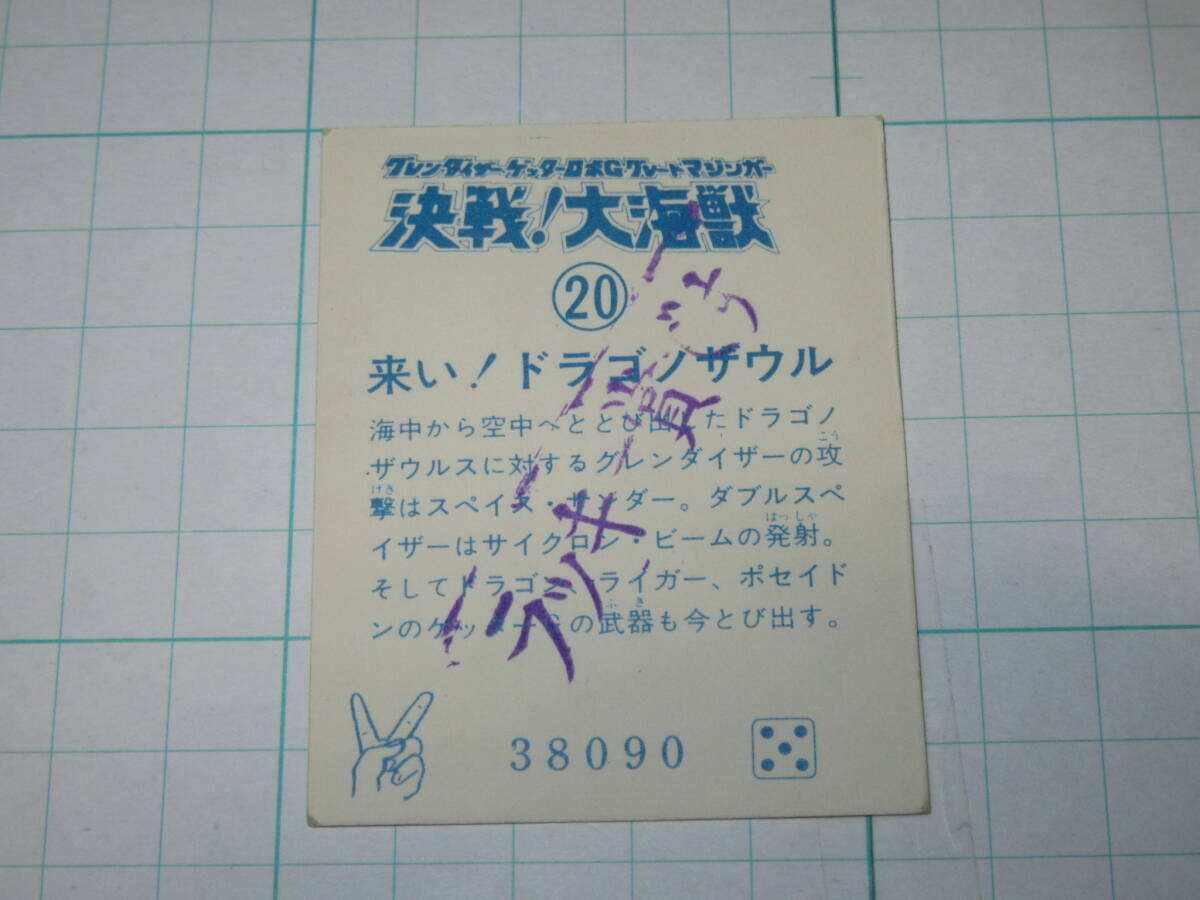 グレンダイザー・ゲッターロボG・グレートマジンガー
決戦!大海獣
20
来い!ドラゴノザウル
海中から空中へととび出したドラゴノ
ザウルスに対するグレンダイザーの攻
撃はスペイス・サンダー。ダブルスペ
イザーはサイクロン・ビームの発射。
そしてドラゴン、ライガー、ポセイド
ンのゲッターGの武器も今とび出す。
38090